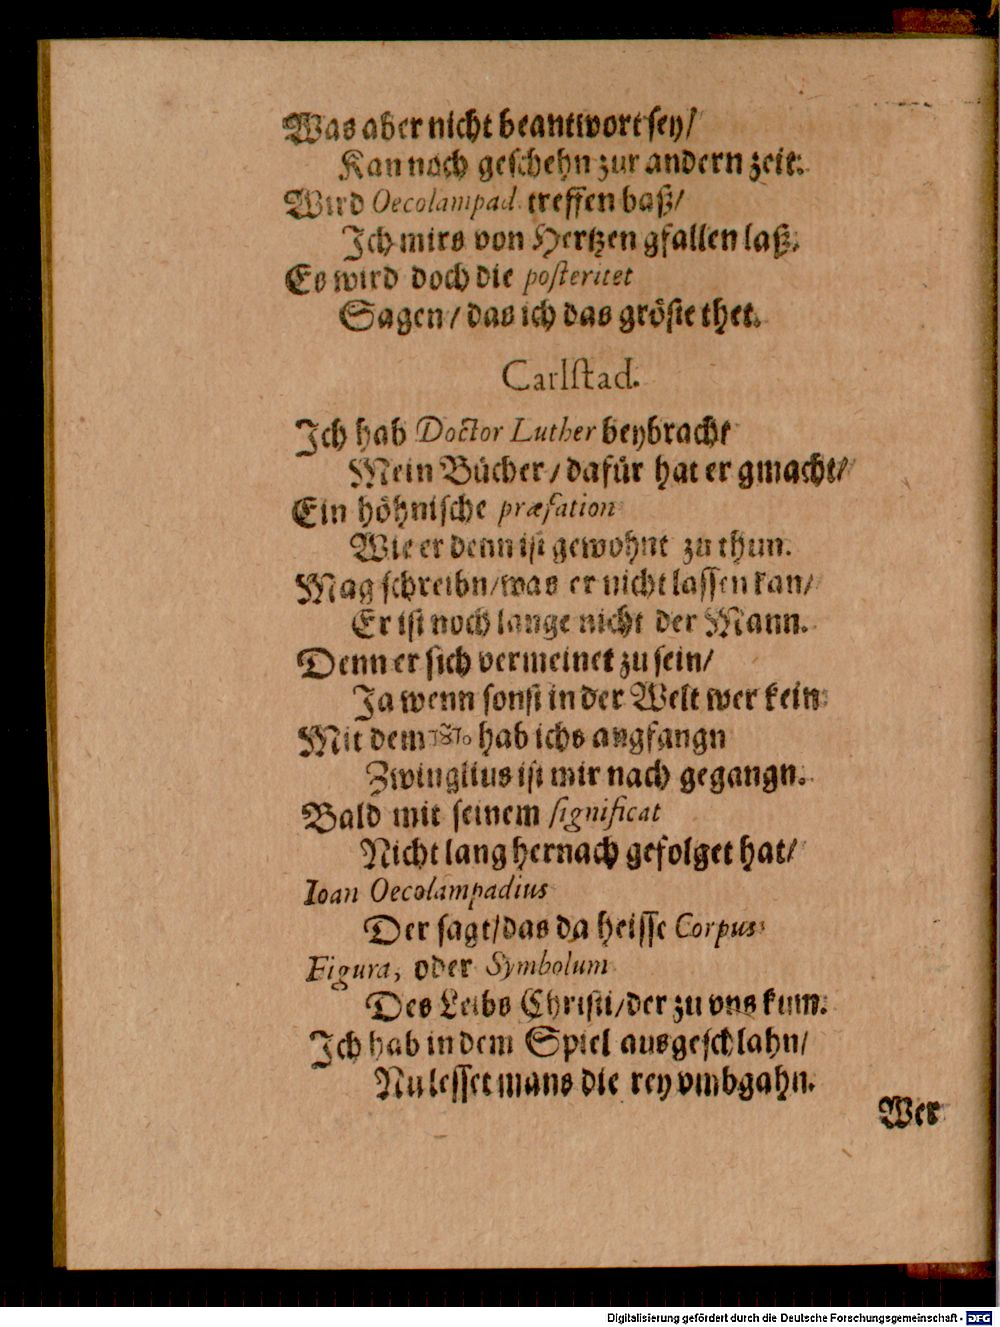 Was aber nicht beantwort sey/
Kan noch geschehn zur andern zeit.
Wird Oecolampad treffen baß/
Ich mirs von Hertzen gfallen laß.
Es wird doch die posteritet
Sagen/ das ich das gröste thet.
Carlstad.
Ich hab Doctor Luther beybracht
Mein Bücher/ dafür hat er gmacht/
Ein höhnische præfation
Wie er denn ist gewohnt zu thun.
Mag schreibn/ was er nicht lassen kan/
Er ist noch lange nicht der Mann.
Denn er sich vermeinet zu sein/
Ja wenn sonst in der Welt wer kein
Mit dem hab ichs angfangn
Zwinglius ist mir nach gegangn.
Bald mit seinem significat
Nicht lang hernach gefolget hat/
Ioan Oecolampadius
Der sagt/ das da heisse Corpus
Figura, oder Symbolum
Des Leibs Christi/ der zu vns kum.
Ich hab in dem Spiel ausgeschlahn/
Nu lesset mans die rey vmbgahn.
Wer
Digitalisierung gefördert durch die Deutsche Forschungsgemeinschaft - DFG